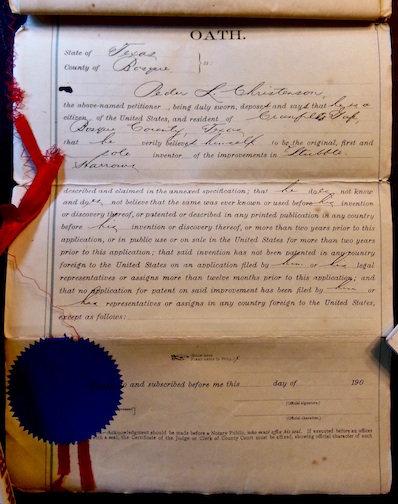 OATH.
State of Texas
County of Bosque } ss:
Peder L. Christenson,
the above-named petitioner, being duly sworn, deposes and says that he is a
citizen of the United States, and resident of Cranfills Gap,
Bosque County, Texas,
that he verily believes himself to be the original, first and
sole inventor of the improvements in Stubble
Harrows
described and claimed in the annexed specification; that he does not know
and does not believe that the same was ever known or used before his invention
or discovery thereof, or patented or described in any printed publication in any country
before his invention or discovery thereof, or more than two years prior to this
application, or in public use or on sale in the United States for more than two years
prior to this application; that said invention has not been patented in any country
foreign to the United States on an application filed by him or his legal
representatives or assigns more than twelve months prior to this application; and
that no application for patent on said improvement has been filed by him or
his representatives or assigns in any country foreign to the United States,
except as follows:
to and subscribed before me this day of 190
(Official signature.)
(Official character.)
Acknowledgment should be made before a Notary Public, who must affix his seal. If executed before an officer
with a seal, the Certificate of the Judge or Clerk of County Court must be affixed, showing official character of such